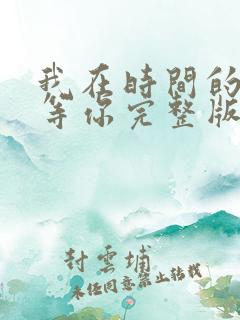 我在時間的
等你完整版
封雲埔
未经同意禁止转载